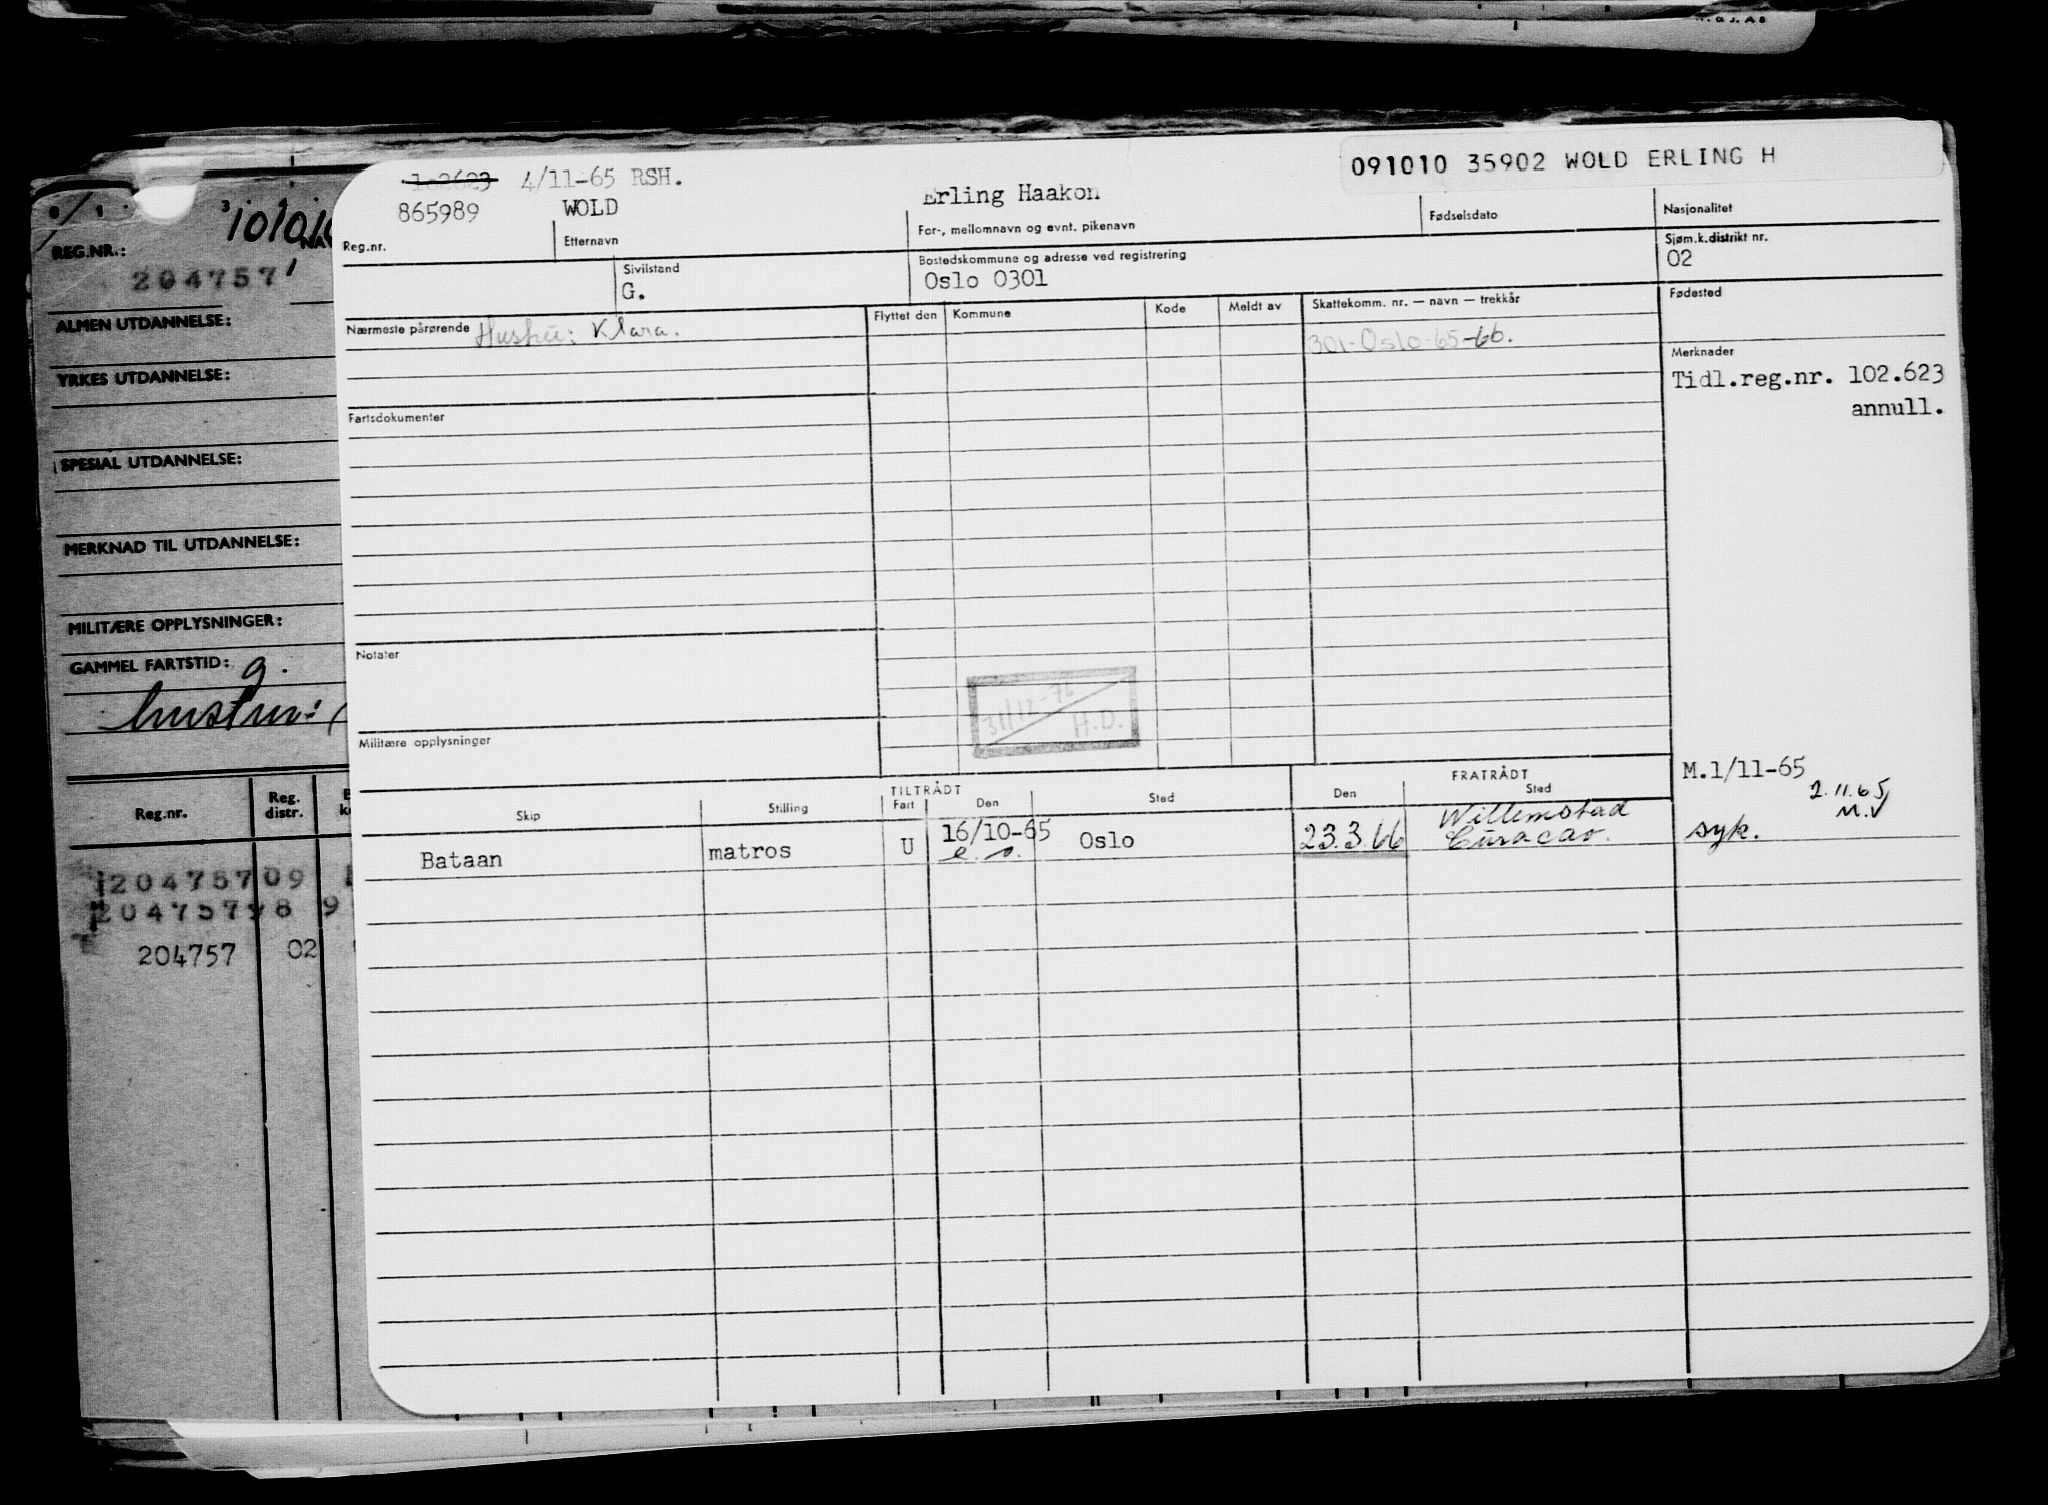 091010 35902 WOLD ERLING H
102623 4/11-65 RSH.
865989 WOLD
Erling Haakon
Reg.nr.
Etternavn
For-, mellomnavn og evnt. pikenavn
Fødselsdato
Nasjonalitet
Sivilstand
G.
Bostedskommune og adresse ved registrering
Oslo 0301
Sjøm.k.distrikt nr.
02
Nærmeste pårørende Hustru: Klara.
Flyttet den
Kommune
Kode
Meldt av
Skattekomm. nr. — navn — trekkår
301-Oslo-65-66.
Fødested
Merknader
Tidl.reg.nr. 102.623
annull.
Fartsdokumenter
Notater
31/12-76
H.D.
Militære opplysninger
TILTRÅDT
FRATRÅDT
Skip
Stilling
Fart
Den
Sted
Den
Sted
M.1/11-65
2.11.65
M.V
Bataan
matros
U
16/10-65
e. o.
Oslo
23.3.66
Willemstad
Curacao.
syk.
REG.NR.:
204757
ALMEN UTDANNELSE:
YRKES UTDANNELSE:
SPESIAL UTDANNELSE:
MERKNAD TIL UTDANNELSE:
MILITÆRE OPPLYSNINGER:
GAMMEL FARTSTID: g.
hustru:
Reg.nr.
Reg.
distr.
204757 09
204757 98 9
204757 02